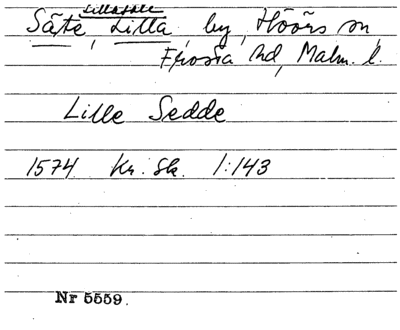 Lillasäte
Säte, Lilla, by, Höörs sn,
Frosta hd, Malm. l.
Lille Sedde
1574 Kr. Sk. 1:143
Nr 5559.